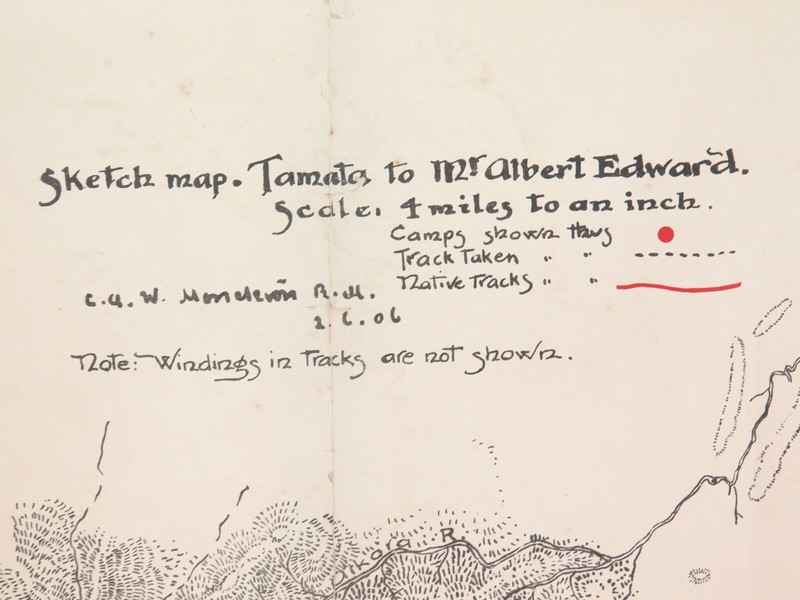 Sketch map. Tamata to Mt Albert Edward.
Scale. 4 miles to an inch.
Camps shown thus
Track Taken " "
Native Tracks " "
C.A.W. Monckton R.M.
2.6.06
Note:- Windings in Tracks are not shown.
Oikora R